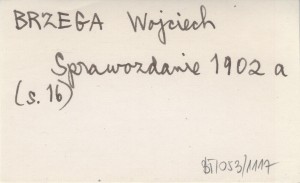 BRZEGA Wojciech
Sprawozdanie 1902 a
(s. 16)
BT/053/1117